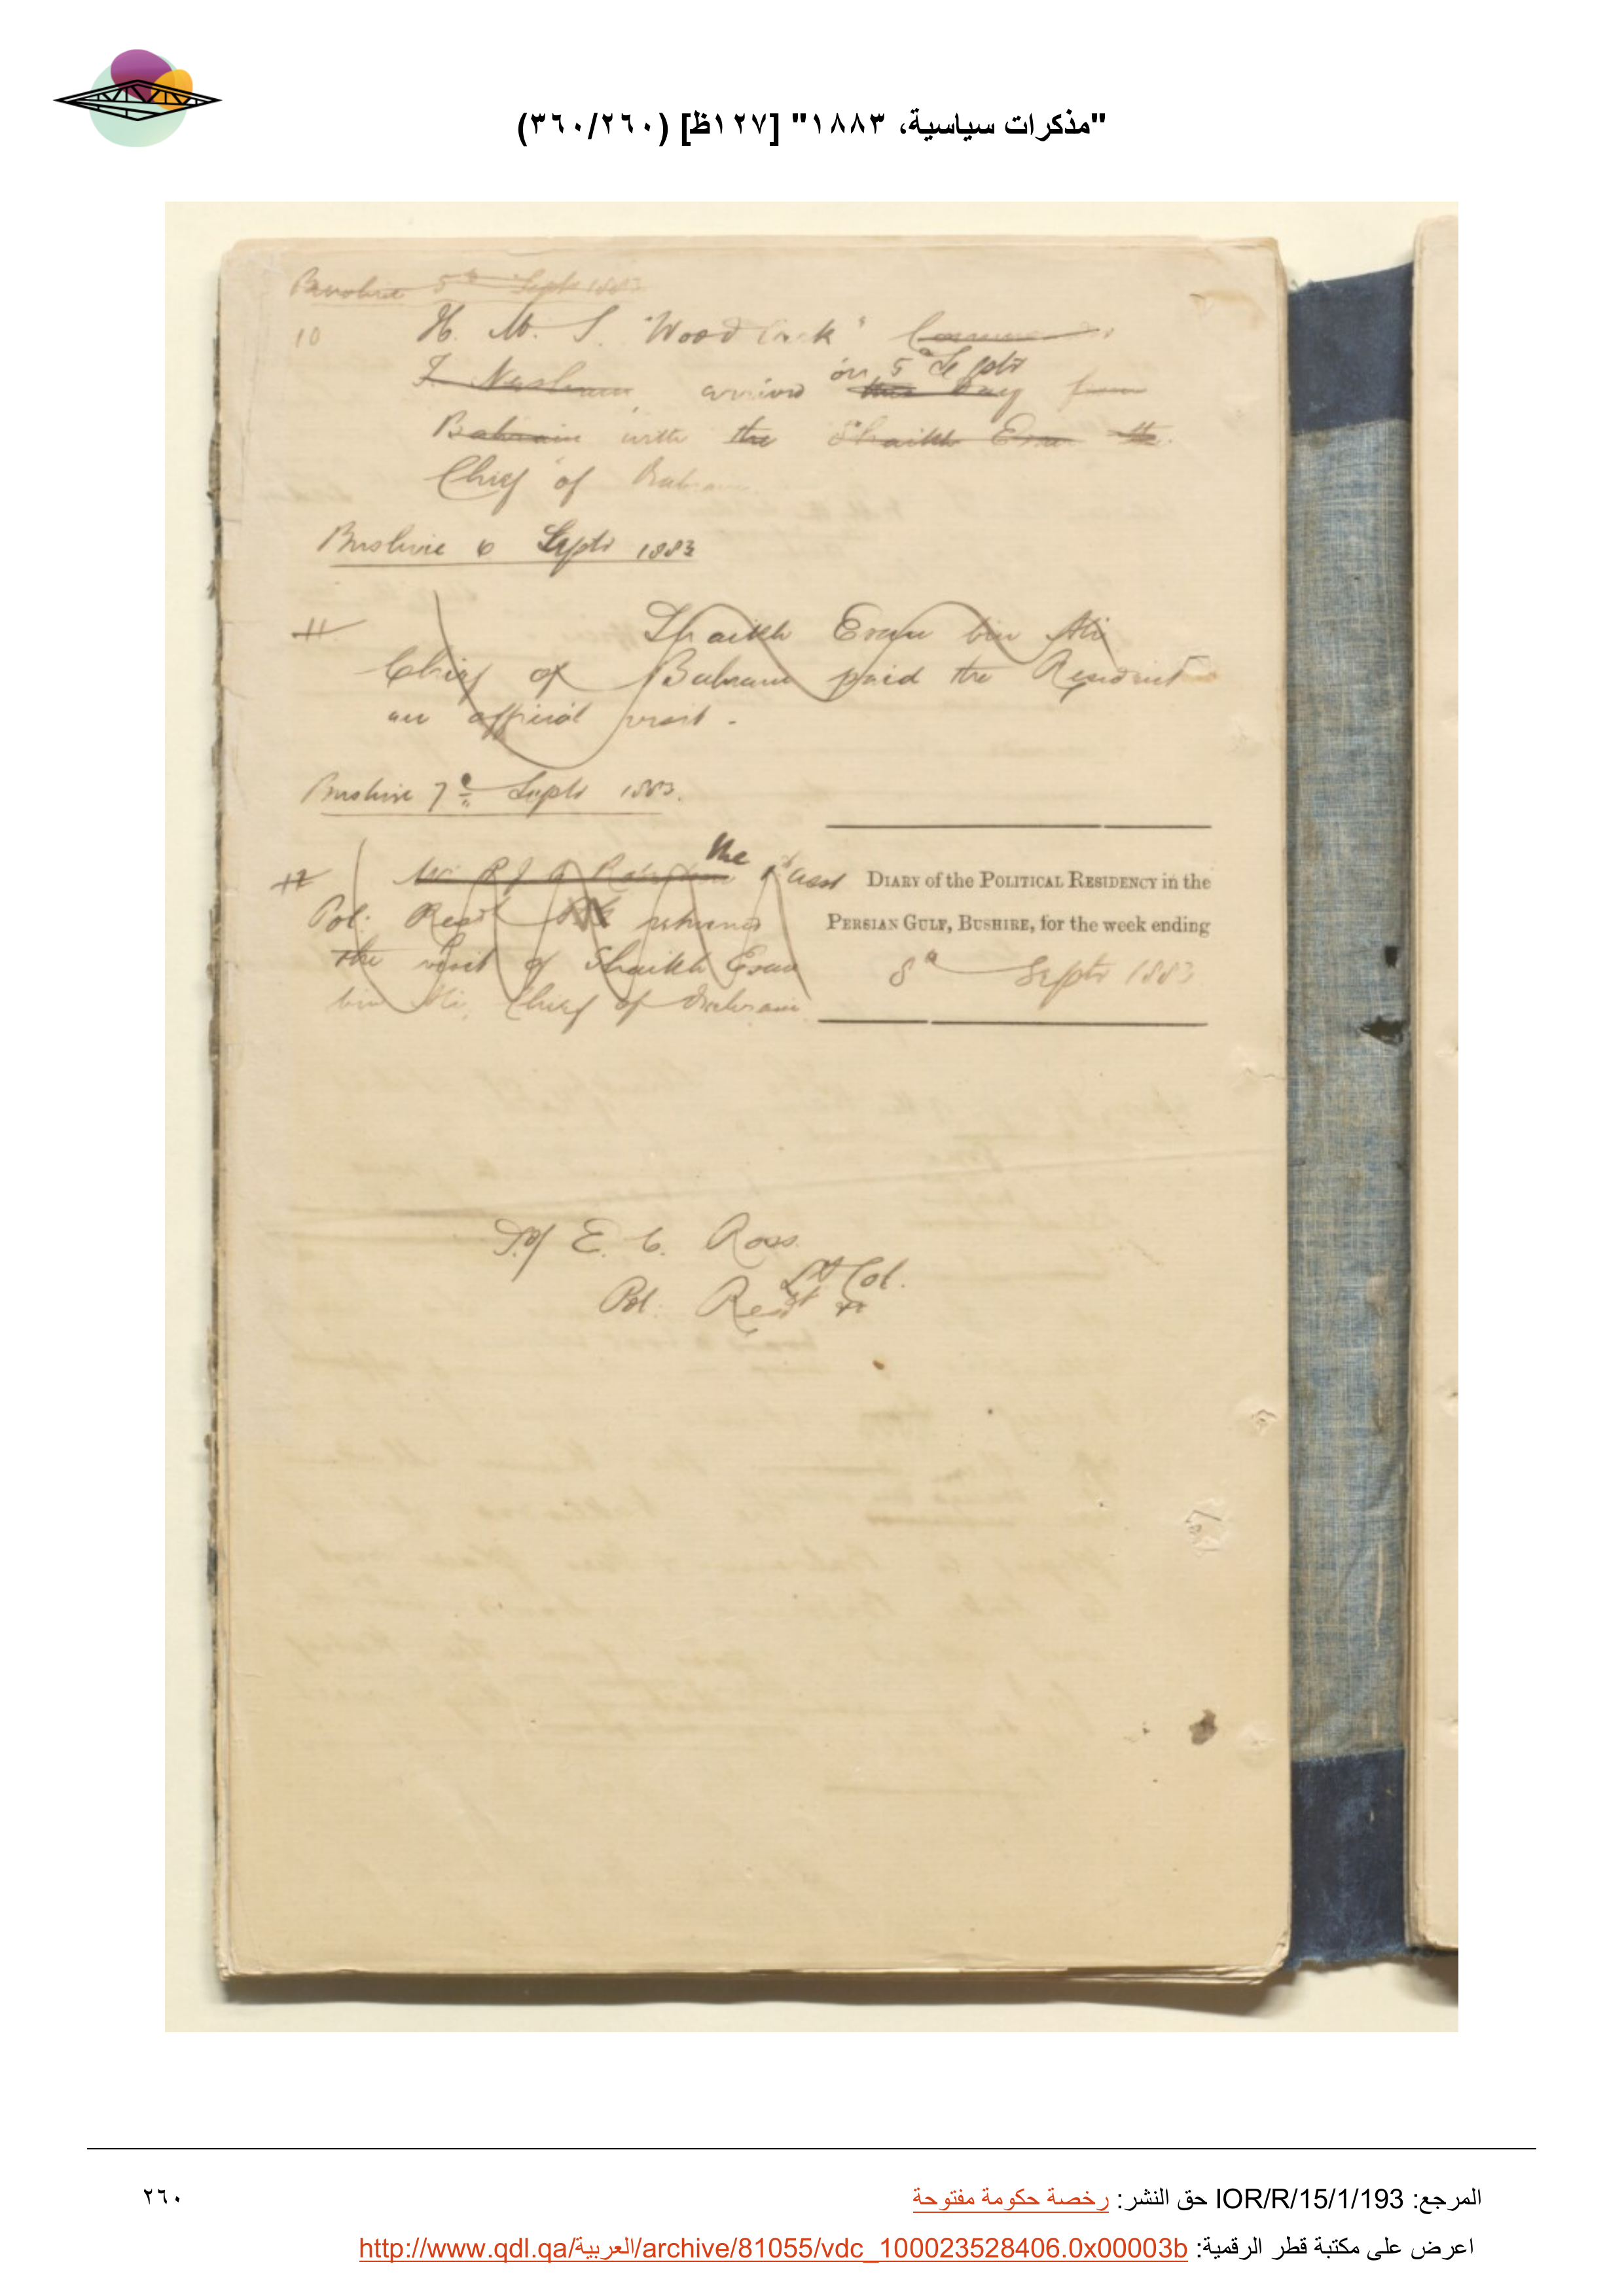 "مذكرات سياسية، ١٨٨٣" [١٢٧ظ] (٣٦٠/٢٦٠)
Bushire 5th Sept 1883
10 H. M. S. "Woodcock"
on 5th Septr
arrived this day from
Bahrain with the Shaikh Esau the
Chief of Bahrain
Bushire 6 Septr 1883
11 Shaikh Esau bin Ali
Chief of Bahrain paid the Resident
an official visit.
Bushire 7th Septr 1883.
the
12 Mr 1st Asst
Pol: Resdt returned
the visit of Shaikh Esau
bin Ali, Chief of Bahrain
DIARY of the POLITICAL RESIDENCY in the
PERSIAN GULF, BUSHIRE, for the week ending
8th Septr 1883
E. C. Ross
Lt Col.
Pol. Resdt
المرجع: IOR/R/15/1/193 حق النشر: رخصة حكومة مفتوحة
٢٦٠
اعرض على مكتبة قطر الرقمية: http://www.qdl.qa/العربية/archive/81055/vdc_100023528406.0x00003b